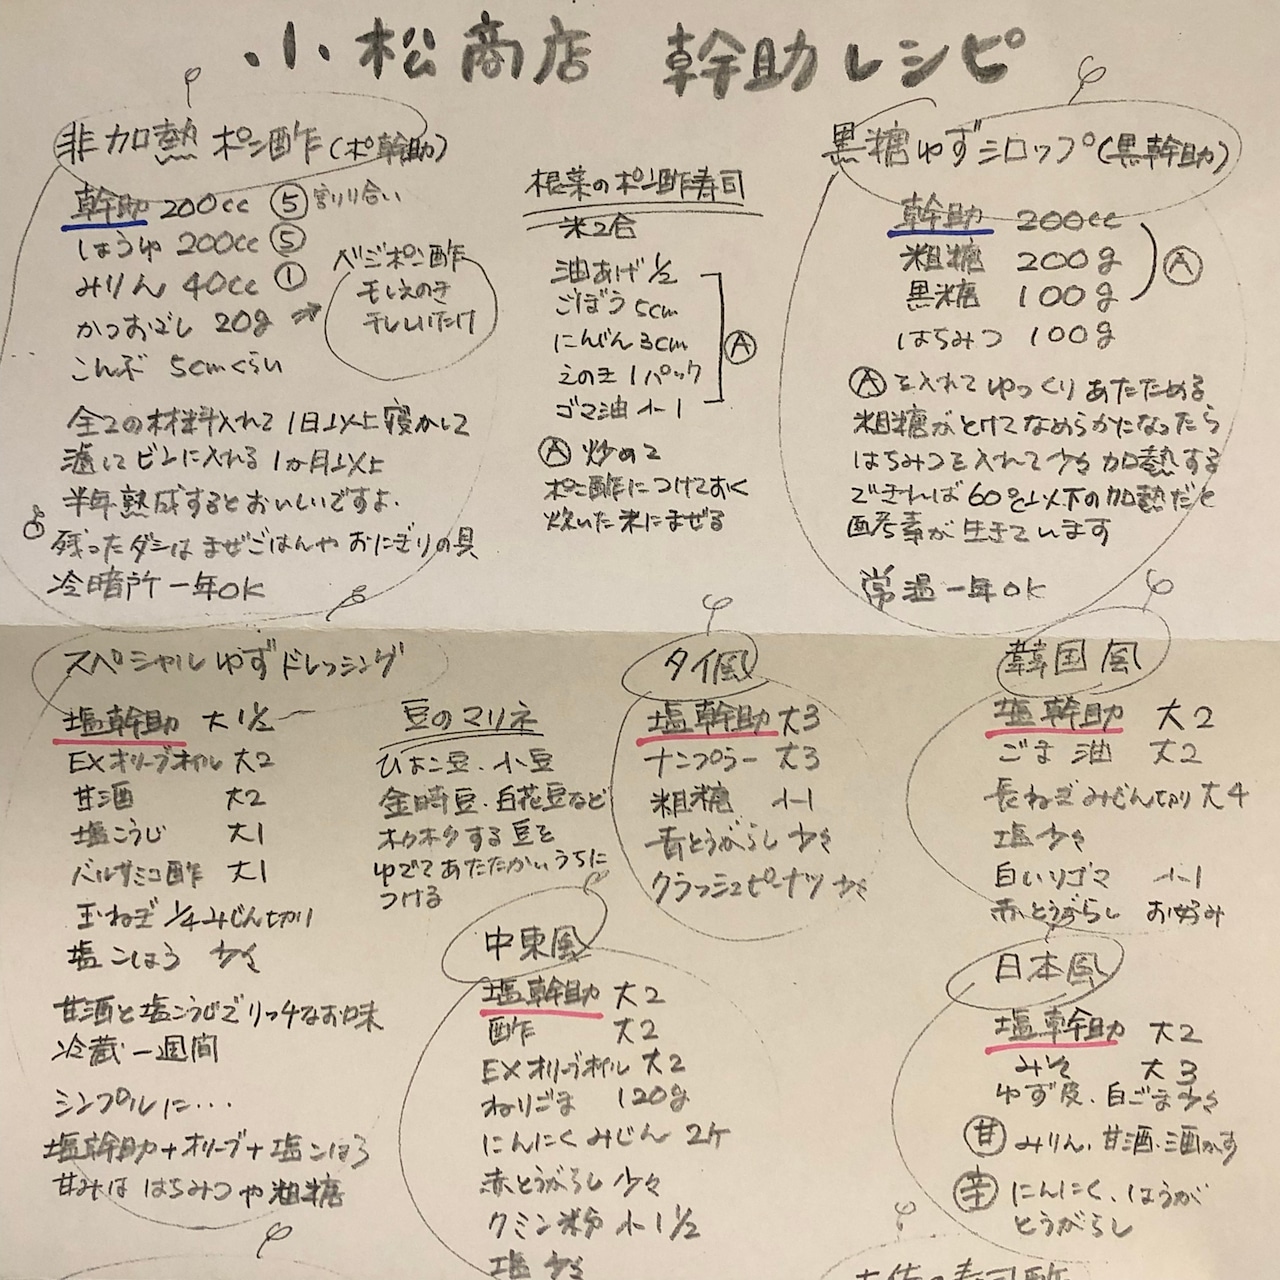 小松商店 幹助レシピ
非加熱ポン酢(ポ幹助)
幹助 200cc ⑤ 割り合い
しょうゆ 200cc ⑤
みりん 40cc ①
かつおぶし 20g ⇒
こんぶ 5cmくらい
ベジポン酢
干しえのき
干ししいたけ
全ての材料入れて 1日以上寝かして
漉してビンに入れる 1か月以上
半年熟成するとおいしいですよ.
残ったダシは まぜごはんや おにぎりの具
冷暗所 一年OK
根菜のポン酢寿司
米2合
油あげ 1/2
ごぼう 5cm
にんじん 3cm
えのき 1パック
ゴマ油 小1
Ⓐ
Ⓐ 炒めて
ポン酢につけておく
炊いた米にまぜる
黒糖ゆずシロップ(黒幹助)
幹助 200cc
粗糖 200g
黒糖 100g
Ⓐ
はちみつ 100g
Ⓐを入れてゆっくりあたためる
粗糖がとけてなめらかになったら
はちみつを入れて少々加熱する
できれば60℃以下の加熱だと
酵素が生きています
常温一年OK
スペシャルゆずドレッシング
塩幹助 大1 1/2
EXオリーブオイル 大2
甘酒 大2
塩こうじ 大1
バルサミコ酢 大1
玉ねぎ 1/4 みじん切り
塩こしょう 少々
甘酒と塩こうじでリッチなお味
冷蔵一週間
シンプルに・・・
塩幹助+オリーブ+塩こしょう
甘みは はちみつや粗糖
豆のマリネ
ひよこ豆、小豆
金時豆、白花豆など
ホクホクする豆を
ゆでてあたたかいうちに
つける
タイ風
塩幹助 大3
ナンプラー 大3
粗糖 小1
青とうがらし 少々
クラッシュピーナツ 少々
韓国風
塩幹助 大2
ごま油 大2
長ねぎみじん切り 大4
塩少々
白いりゴマ 小1
赤とうがらし お好み
中東風
塩幹助 大2
酢 大2
EXオリーブオイル 大2
ねりごま 120g
にんにくみじん 2ケ
赤とうがらし 少々
クミン粉 小1 1/2
塩 少々
日本風
塩幹助 大2
みそ 大3
ゆず皮、白ごま少々
㊙甘 みりん、甘酒、酒かす
辛 にんにく、しょうが
とうがらし